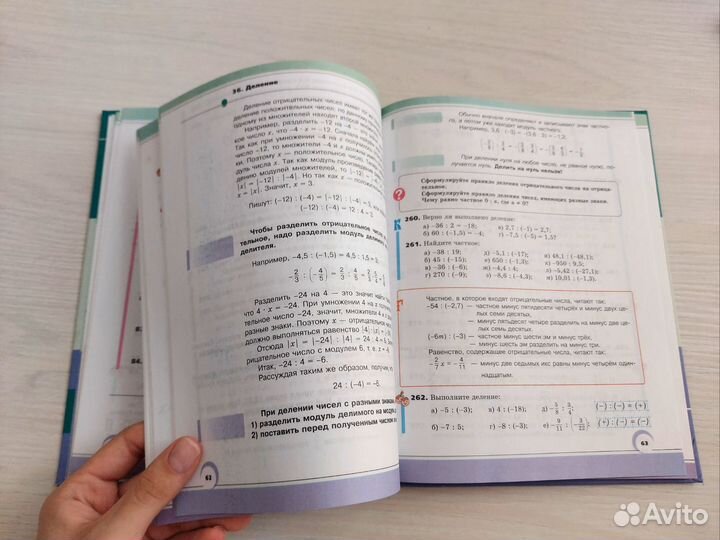 36. Деление
Деление отрицательных чисел имеет
деление положительных чисел:
одному из множителей находят второй
Например, разделить –12 на –4 —
кое число x, что –4 · x = –12. Сначала
Так как при умножении –4 на x получили
число –12, то множители –4 и x должны
ки. Поэтому x — положительное число.
дуль числа x. Так как модуль произведения
дению модулей множителей, то |–12| =
|x| = |–12| : |–4|. Но так как x — положительное
x = |x|. Значит, x = 3.
Пишут: (–12) : (–4) = |–12| : |–4|
(–12) : (–4) = 12 : 4 = 3.
Чтобы разделить отрицательное число
тельное, надо разделить модуль делимого
делителя.
Например, –4,5 : (–1,5) = 4,5 : 1,5 = 3;
Разделить –24 на 4 — это значит найти
что 4 · x = –24. При умножении 4 на x
тельное число –24, значит, множители 4 и x
разные знаки. Поэтому x — отрицательное
должно выполняться равенство |4| · |x| =
Отсюда |x| = |–24| : |4| = 24 : 4 = 6.
рицательное число с модулем 6, т. е. x = –6
Итак, –24 : 4 = –6.
Рассуждая таким же образом, получим,
24 : (–4) = –6.
При делении чисел с разными знаками
1) разделить модуль делимого на модуль
2) поставить перед полученным числом
62
Обычно вначале определяют и записывают знак частно-
го, а потом уже находят модуль частного.
Например, 3,6 : (–3) = –(3,6 : 3) = –1,2;
При делении нуля на любое число, не равное нулю, по-
лучается нуль. Делить на нуль нельзя!
?
Сформулируйте правило деления отрицательного числа на отрица-
тельное.
Сформулируйте правило деления чисел, имеющих разные знаки.
Чему равно частное 0 : a, где a ≠ 0?
К
260. Верно ли выполнено деление:
а) –36 : 2 = –18; в) 2,7 : (–1) = 2,7;
б) 60 : (–1,5) = –4; г) –7,5 : (–5) = 1,5?
261. Найдите частное:
а) –38 : 19; д) –5,1 : (–17); и) 48,1 : (–48,1);
б) 45 : (–15); е) 650 : (–1,3); к) –950 : 9,5;
в) –36 : (–6); ж) –4,4 : 4; л) –5,42 : (–27,1);
г) 270 : (–9); з) –8,6 : (–4,3); м) 10,01 : (–1,3).
Г
Частное, в которое входят отрицательные числа, читают так:
–54 : (–2,7) — частное минус пятидесяти четырёх и минус двух це-
лых семи десятых,
— минус пятьдесят четыре разделить на минус две це-
лых семь десятых.
(–6m) : (–3) — частное минус шести эм и минус трёх,
— минус шесть эм разделить на минус три.
Равенство, содержащее отрицательные числа, читают так:
–2/7 x = –4/11 — минус две седьмых икс равны минус четырём один-
надцатым.
262. Выполните деление:
а) –5 : (–3); в) 4 : (–18); д) –3/8 : 3/4; (–) : (–) = (+)
б) –7 : 5; г) –8 : (–3); е) –3/11 : (–3/22); (+) : (–) = (–)
63
Avito